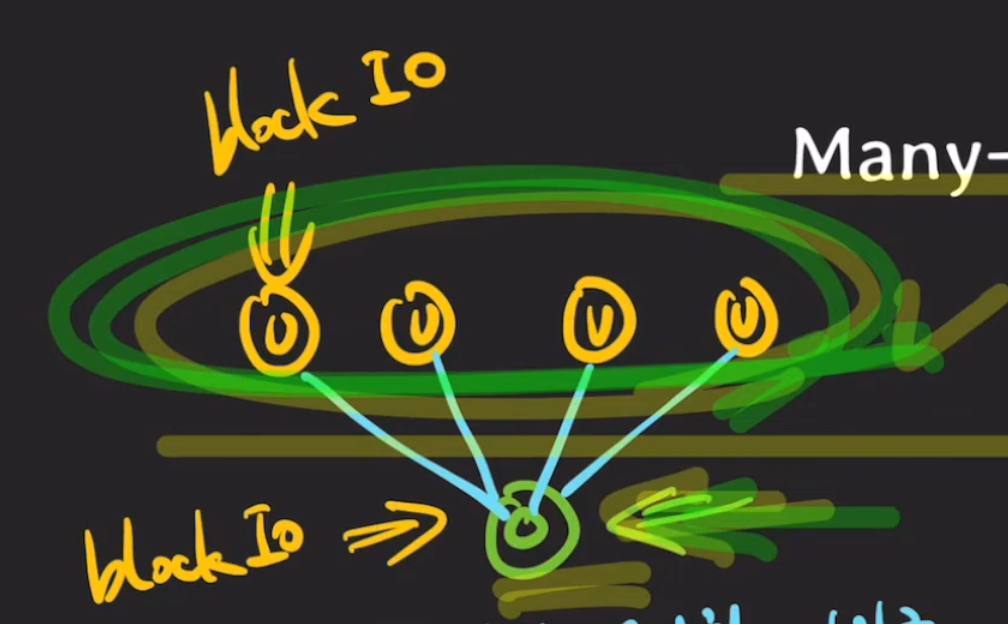 block IO
Many-
U U U U
block IO